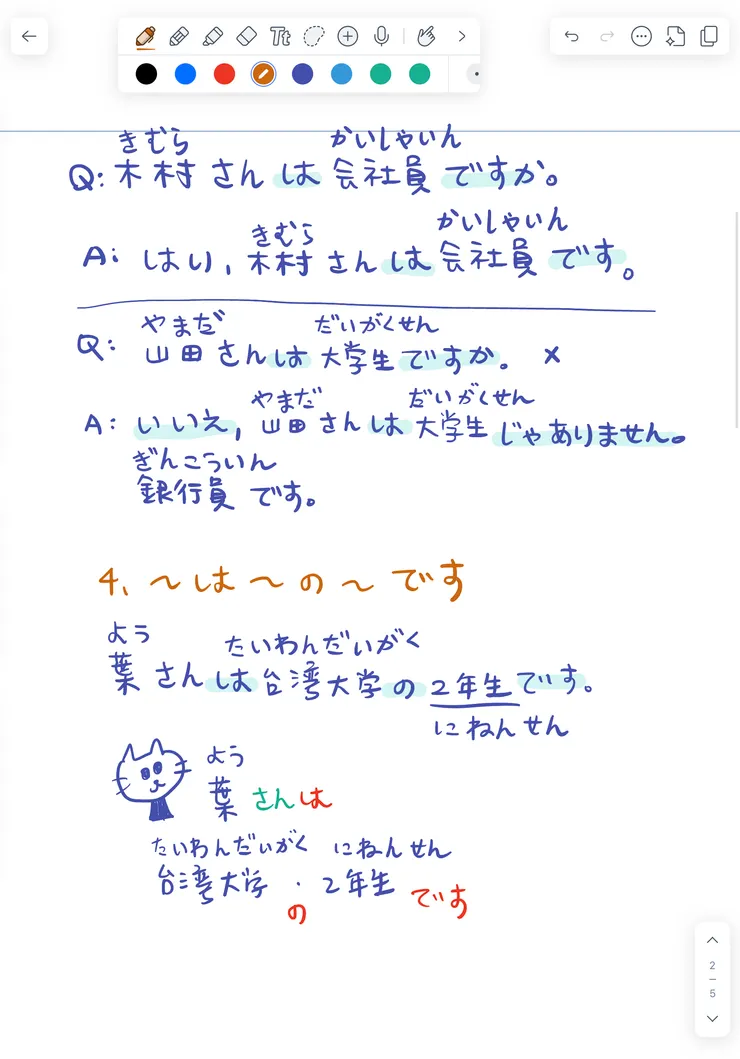 Tt
きむら かいしゃいん
Q: 木村さんは会社員ですか。
きむら かいしゃいん
A: はい, 木村さんは会社員です。
やまだ だいがくせん
Q: 山田さんは大学生ですか. ×
やまだ だいがくせん
A: いいえ, 山田さんは大学生じゃありません。
ぎんこういん
銀行員です。
4. 〜は〜の〜です
よう たいわんだいがく
葉さんは台湾大学の2年生です。
にねんせん
よう
葉さんは
たいわんだいがく にねんせん
台湾大学・2年生です
の
2
5